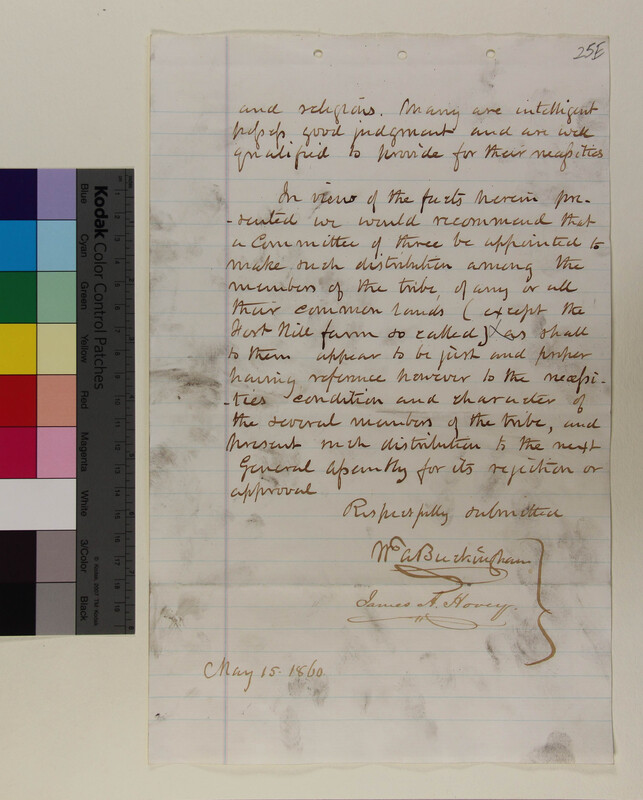 25E
and religious. Many are intelligent
possess good judgment and are well
qualified to provide for their necessities
In view of the facts herein pre-
-sented we would recommend that
a Committee of three be appointed to
make such distribution among the
members of the tribe, of any or all
their common lands (except the
Fort Hill farm so called) as shall
to them appear to be just and proper
having reference however to the necessi-
-ties condition and character of
the several members of the tribe, and
present such distribution to the next
General Assembly for its rejection or
approval
Respectfully submitted
Wm A Buckingham
James A. Hovey.
May 15 1860
Kodak Color Control Patches
Blue
Cyan
Green
Yellow
Red
Magenta
White
3/Color
Black